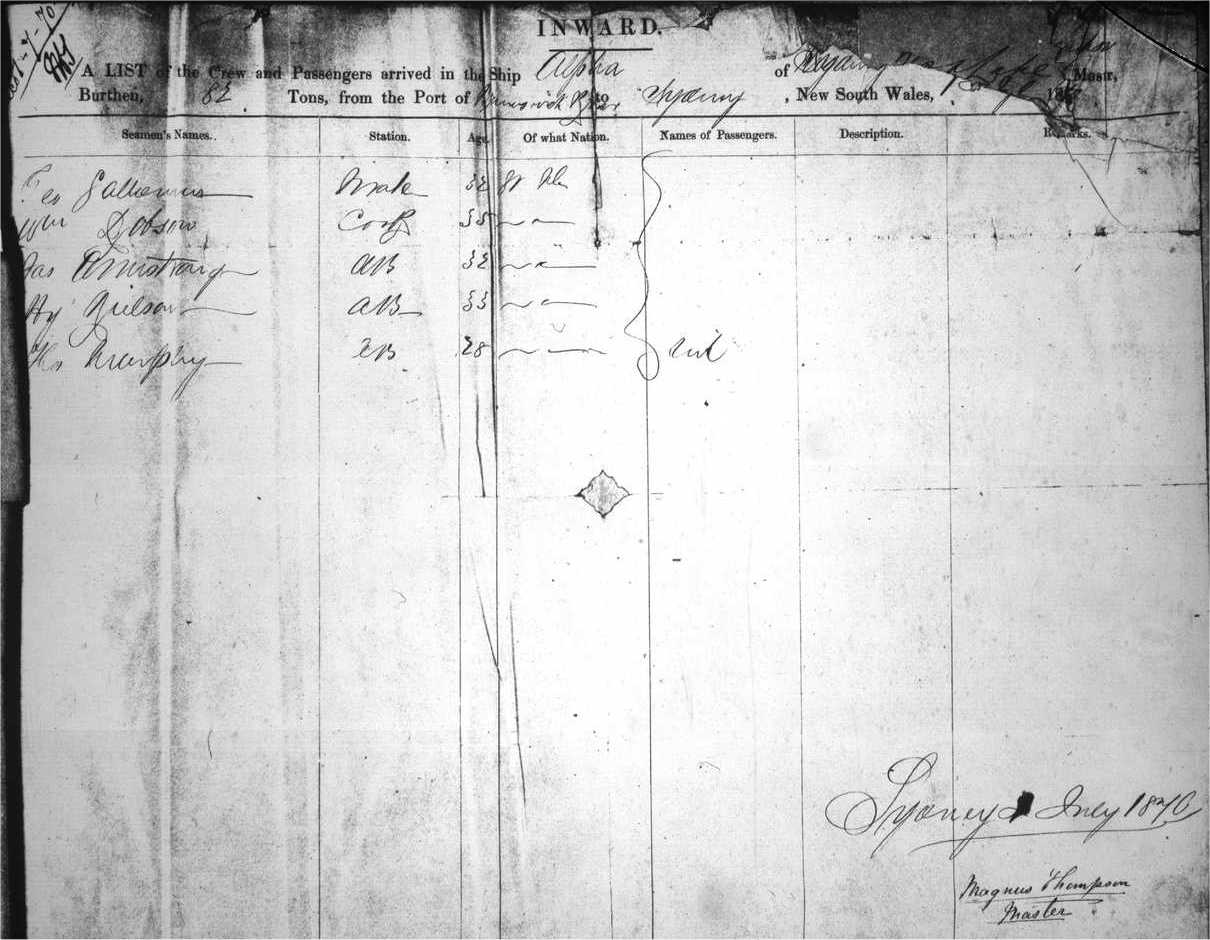 INWARD.
A LIST of the Crew and Passengers arrived in the Ship Alpha of Masir,
Burthen, 82 Tons, from the Port of to Sydney, New South Wales,
Seamen's Names. Station. Age. Of what Nation. Names of Passengers. Description. Remarks.
Mate 32
Wm Dobson Cook 35
Jas Armstrong AB 32
Hy AB 33
Thos Murphy AB 28 Nil
Sydney July 1870
Magnus Thompson
Master